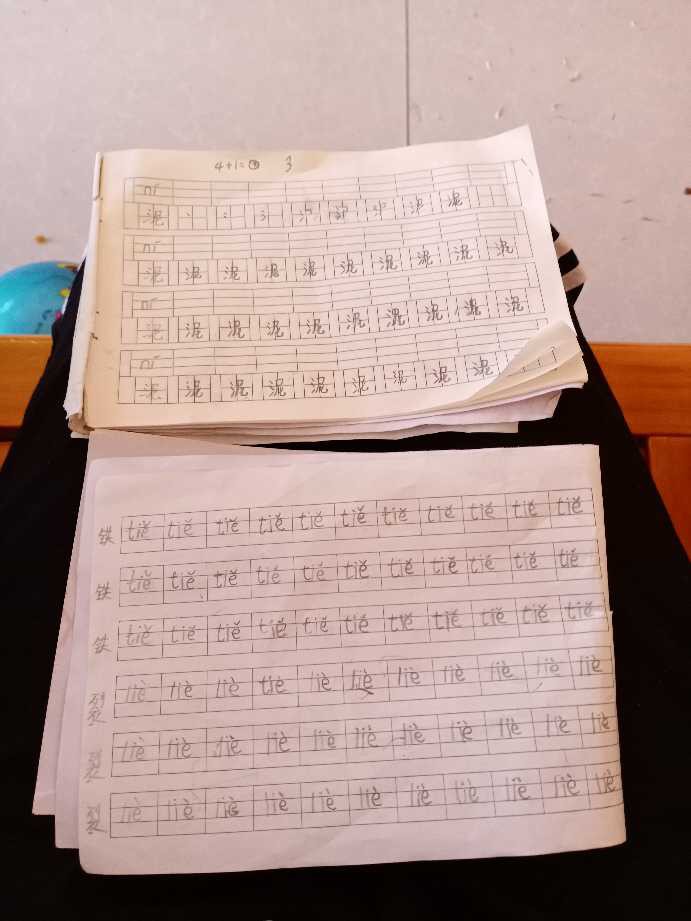 4+1= 3
ní
泥 丶 冫 氵 泥 泥
ní
泥 泥 泥 泥 泥 泥 泥 泥 泥 泥
ní
泥 泥 泥 泥 泥 泥 泥 泥 泥 泥
ní
泥 泥 泥 泥 泥 泥 泥 泥 泥
铁 tiě tiě tiě tiě tiě tiě tiě tiě tiě tiě tiě
铁 tiě tiě tiě tiě tiě tiě tiě tiě tiě tiě tiě
铁 tiě tiě tiě tiě tiě tiě tiě tiě tiě tiě tiě
裂 liè liè liè liè liè liè liè liè liè liè liè
裂 liè liè liè liè liè liè liè liè liè liè liè
裂 liè liè liè liè liè liè liè liè liè liè liè